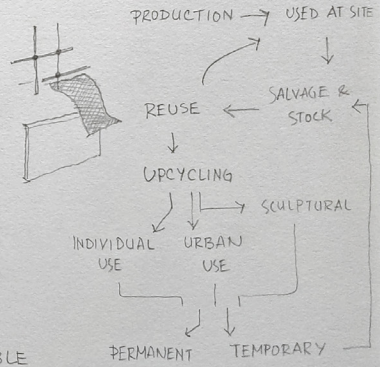 PRODUCTION → USED AT SITE
SALVAGE &
STOCK
REUSE
UPCYCLING
SCULPTURAL
INDIVIDUAL
USE
URBAN
USE
BLE
PERMANENT
TEMPORARY